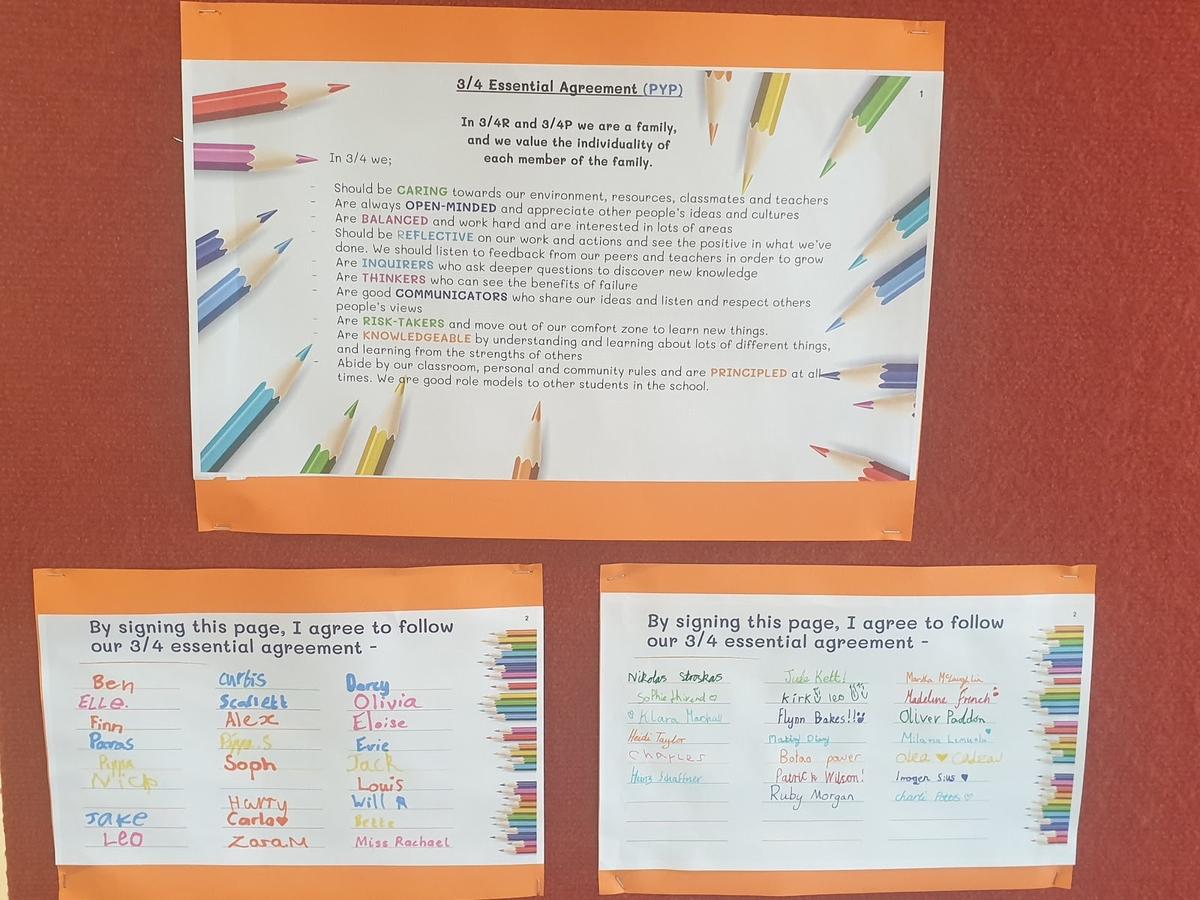 3/4 Essential Agreement (PYP)
1
In 3/4R and 3/4P we are a family,
and we value the individuality of
each member of the family.
In 3/4 we;
- Should be CARING towards our environment, resources, classmates and teachers
- Are always OPEN-MINDED and appreciate other people's ideas and cultures
- Are BALANCED and work hard and are interested in lots of areas
- Should be REFLECTIVE on our work and actions and see the positive in what we've
done. We should listen to feedback from our peers and teachers in order to grow
- Are INQUIRERS who ask deeper questions to discover new knowledge
- Are THINKERS who can see the benefits of failure
- Are good COMMUNICATORS who share our ideas and listen and respect others
people's views
- Are RISK-TAKERS and move out of our comfort zone to learn new things.
- Are KNOWLEDGEABLE by understanding and learning about lots of different things,
and learning from the strengths of others
- Abide by our classroom, personal and community rules and are PRINCIPLED at all
times. We are good role models to other students in the school.
2
By signing this page, I agree to follow
our 3/4 essential agreement -
Ben
ELLE.
Finn
Paras
Pippa
Nick
JAKE
LEO
Curtis
Scarlett
Alex
Pippa.S
Soph
Harry
Carla
Zara.M
Darcy
Olivia
Eloise
Evie
Jack
Louis
Will
Bette
Miss Rachael
2
By signing this page, I agree to follow
our 3/4 essential agreement -
Nikolas
Sophie
Klara
Heidi Taylor
Charles
Schaffner
Jude Kett!
Kirk leo
Flynn Bakes!!
Bolas power
Patrick Wilson!
Ruby Morgan
McLaughlin
Madeline french
Oliver Paddon
Milana
Imogen Sius
charli Potts